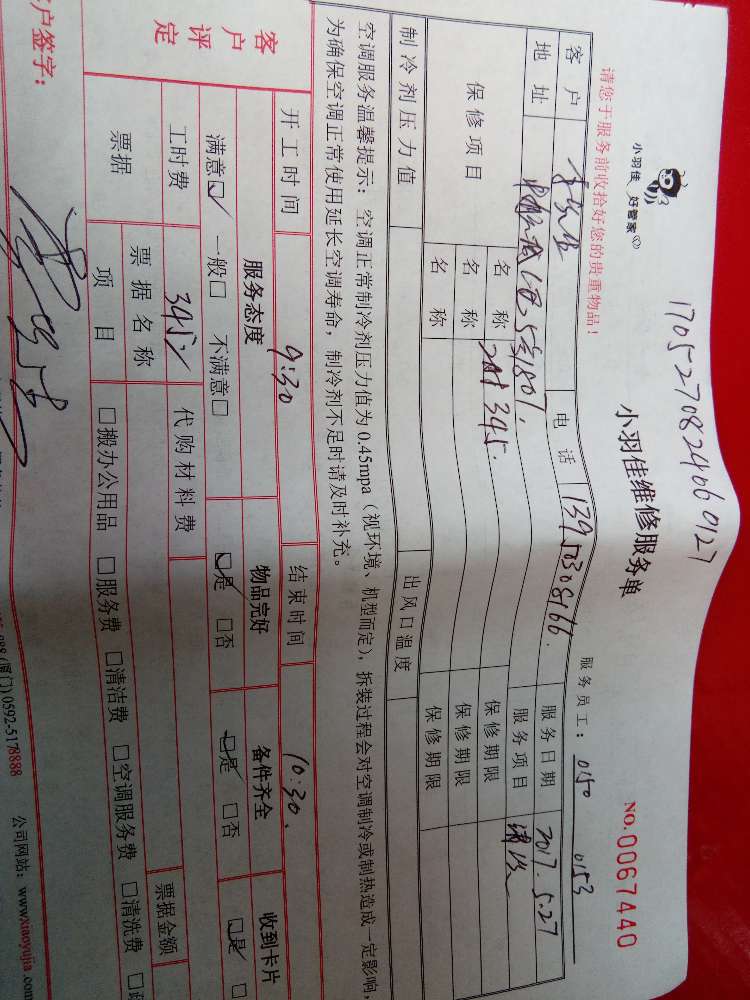 1705270824060127
小羽佳 好管家
小羽佳维修服务单
NO.0067440
请您于服务前收拾好您的贵重物品！
服务员工： 0150 0153
客户 电话 13950308166. 服务日期 2017.5.27
地址 5号1801. 服务项目 清洗
保修项目 名称 345. 保修期限
名称 保修期限
名称 保修期限
制冷剂压力值 出风口温度
空调服务温馨提示：空调正常制冷剂压力值为0.45mpa（视环境、机型而定），拆装过程会对空调制冷或制热造成一定影响，
为确保空调正常使用延长空调寿命，制冷剂不足时请及时补充。
开工时间 9:30 结束时间 10:30.
客户评定 服务态度 物品完好 备件齐全 收到卡片
满意□ 一般□ 不满意□ □是 □否 □是 □否 □是 □
工时费 345 代购材料费
票据 票据名称 票据金额
项目 □搬办公用品 □服务费 □清洁费 □空调服务费 □清洗费
客户签字：
(厦门)0592-5178888 公司网站：www.xiaoyujia.com